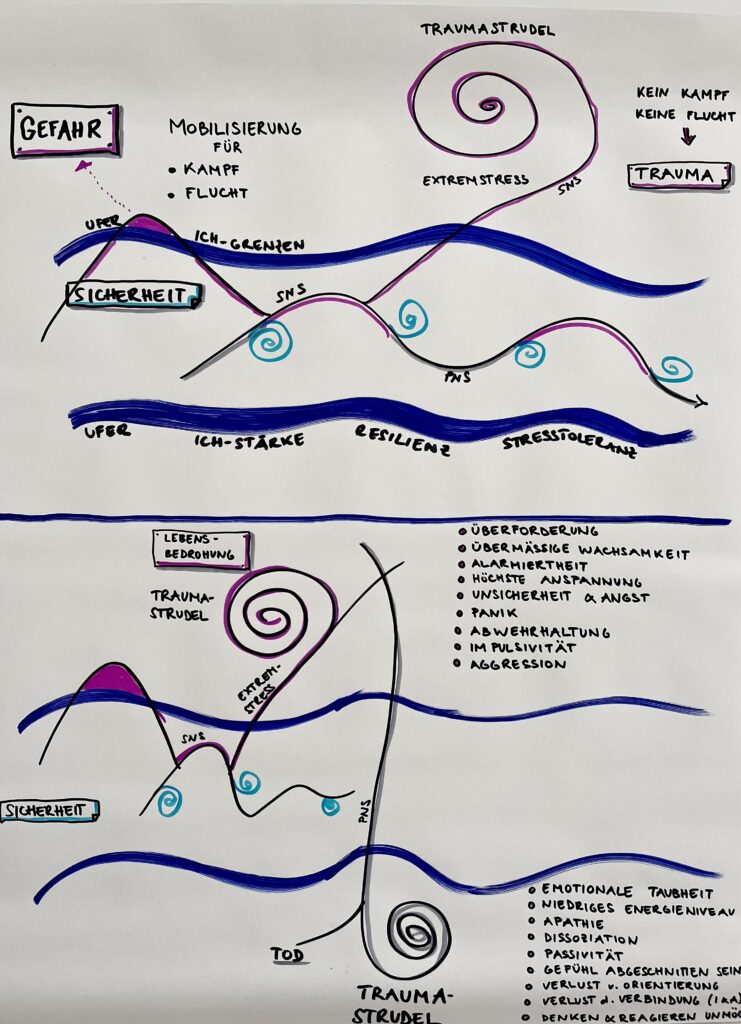 TRAUMASTRUDEL
GEFAHR
MOBILISIERUNG
FÜR
• KAMPF
• FLUCHT
KEIN KAMPF
KEINE FLUCHT
TRAUMA
EXTREMSTRESS
SNS
UFER
ICH-GRENZEN
SICHERHEIT
SNS
PNS
UFER
ICH-STÄRKE
RESILIENZ
STRESSTOLERANZ
LEBENS-
BEDROHUNG
TRAUMA-
STRUDEL
EXTREM-
STRESS
• ÜBERFORDERUNG
• ÜBERMÄSSIGE WACHSAMKEIT
• ALARMIERTHEIT
• HÖCHSTE ANSPANNUNG
• UNSICHERHEIT & ANGST
• PANIK
• ABWEHRHALTUNG
• IMPULSIVITÄT
• AGGRESSION
SNS
SICHERHEIT
PNS
TOD
TRAUMA-
STRUDEL
• EMOTIONALE TAUBHEIT
• NIEDRIGES ENERGIENIVEAU
• APATHIE
• DISSOZIATION
• PASSIVITÄT
• GEFÜHL ABGESCHNITTEN SEIN
• VERLUST v. ORIENTIERUNG
• VERLUST d. VERBINDUNG (I&A)
• DENKEN & REAGIEREN UNMÖ